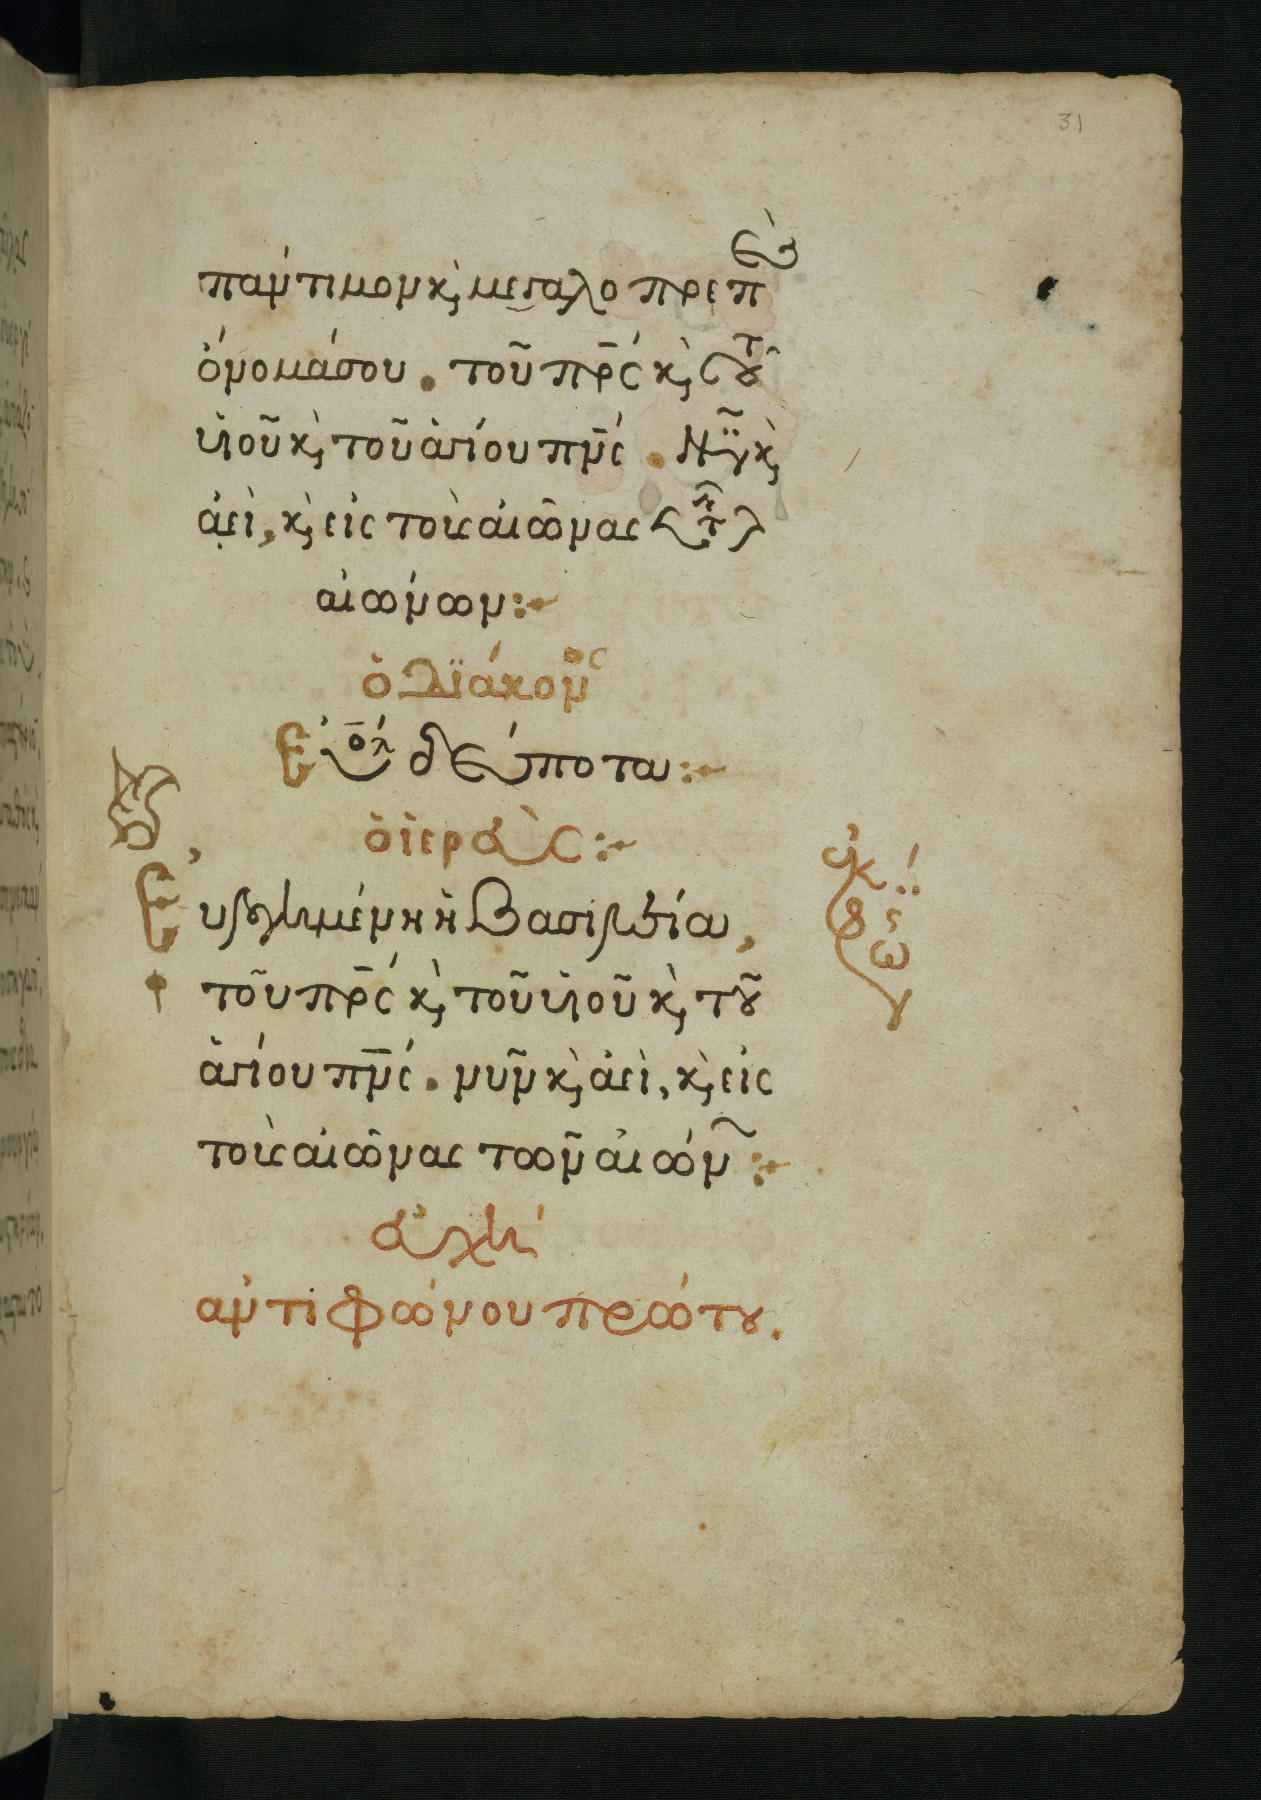 31
πάντιμον κὶ μεγαλοπρεπὲς
ὄνομά σου. τοῦ πρ̅ς κὶ τοῦ
υἱοῦ κὶ τοῦ ἁγίου πν̅ς. νῦν κὶ
ἀεὶ, κὶ εἰς τοὺς αἰῶνας τῶν
αἰώνων:
ὁ διάκον
Εὐλό δέσποτα:
ὁ ἱερεὺς:
Εὐλογημένη ἡ βασιλεία,
τοῦ πρ̅ς κὶ τοῦ υἱοῦ κὶ τοῦ
ἁγίου πν̅ς. νῦν κὶ ἀεὶ, κὶ εἰς
τοὺς αἰῶνας τῶν αἰών:
ἀρχὴ
ἀντιφώνου πρώτου.